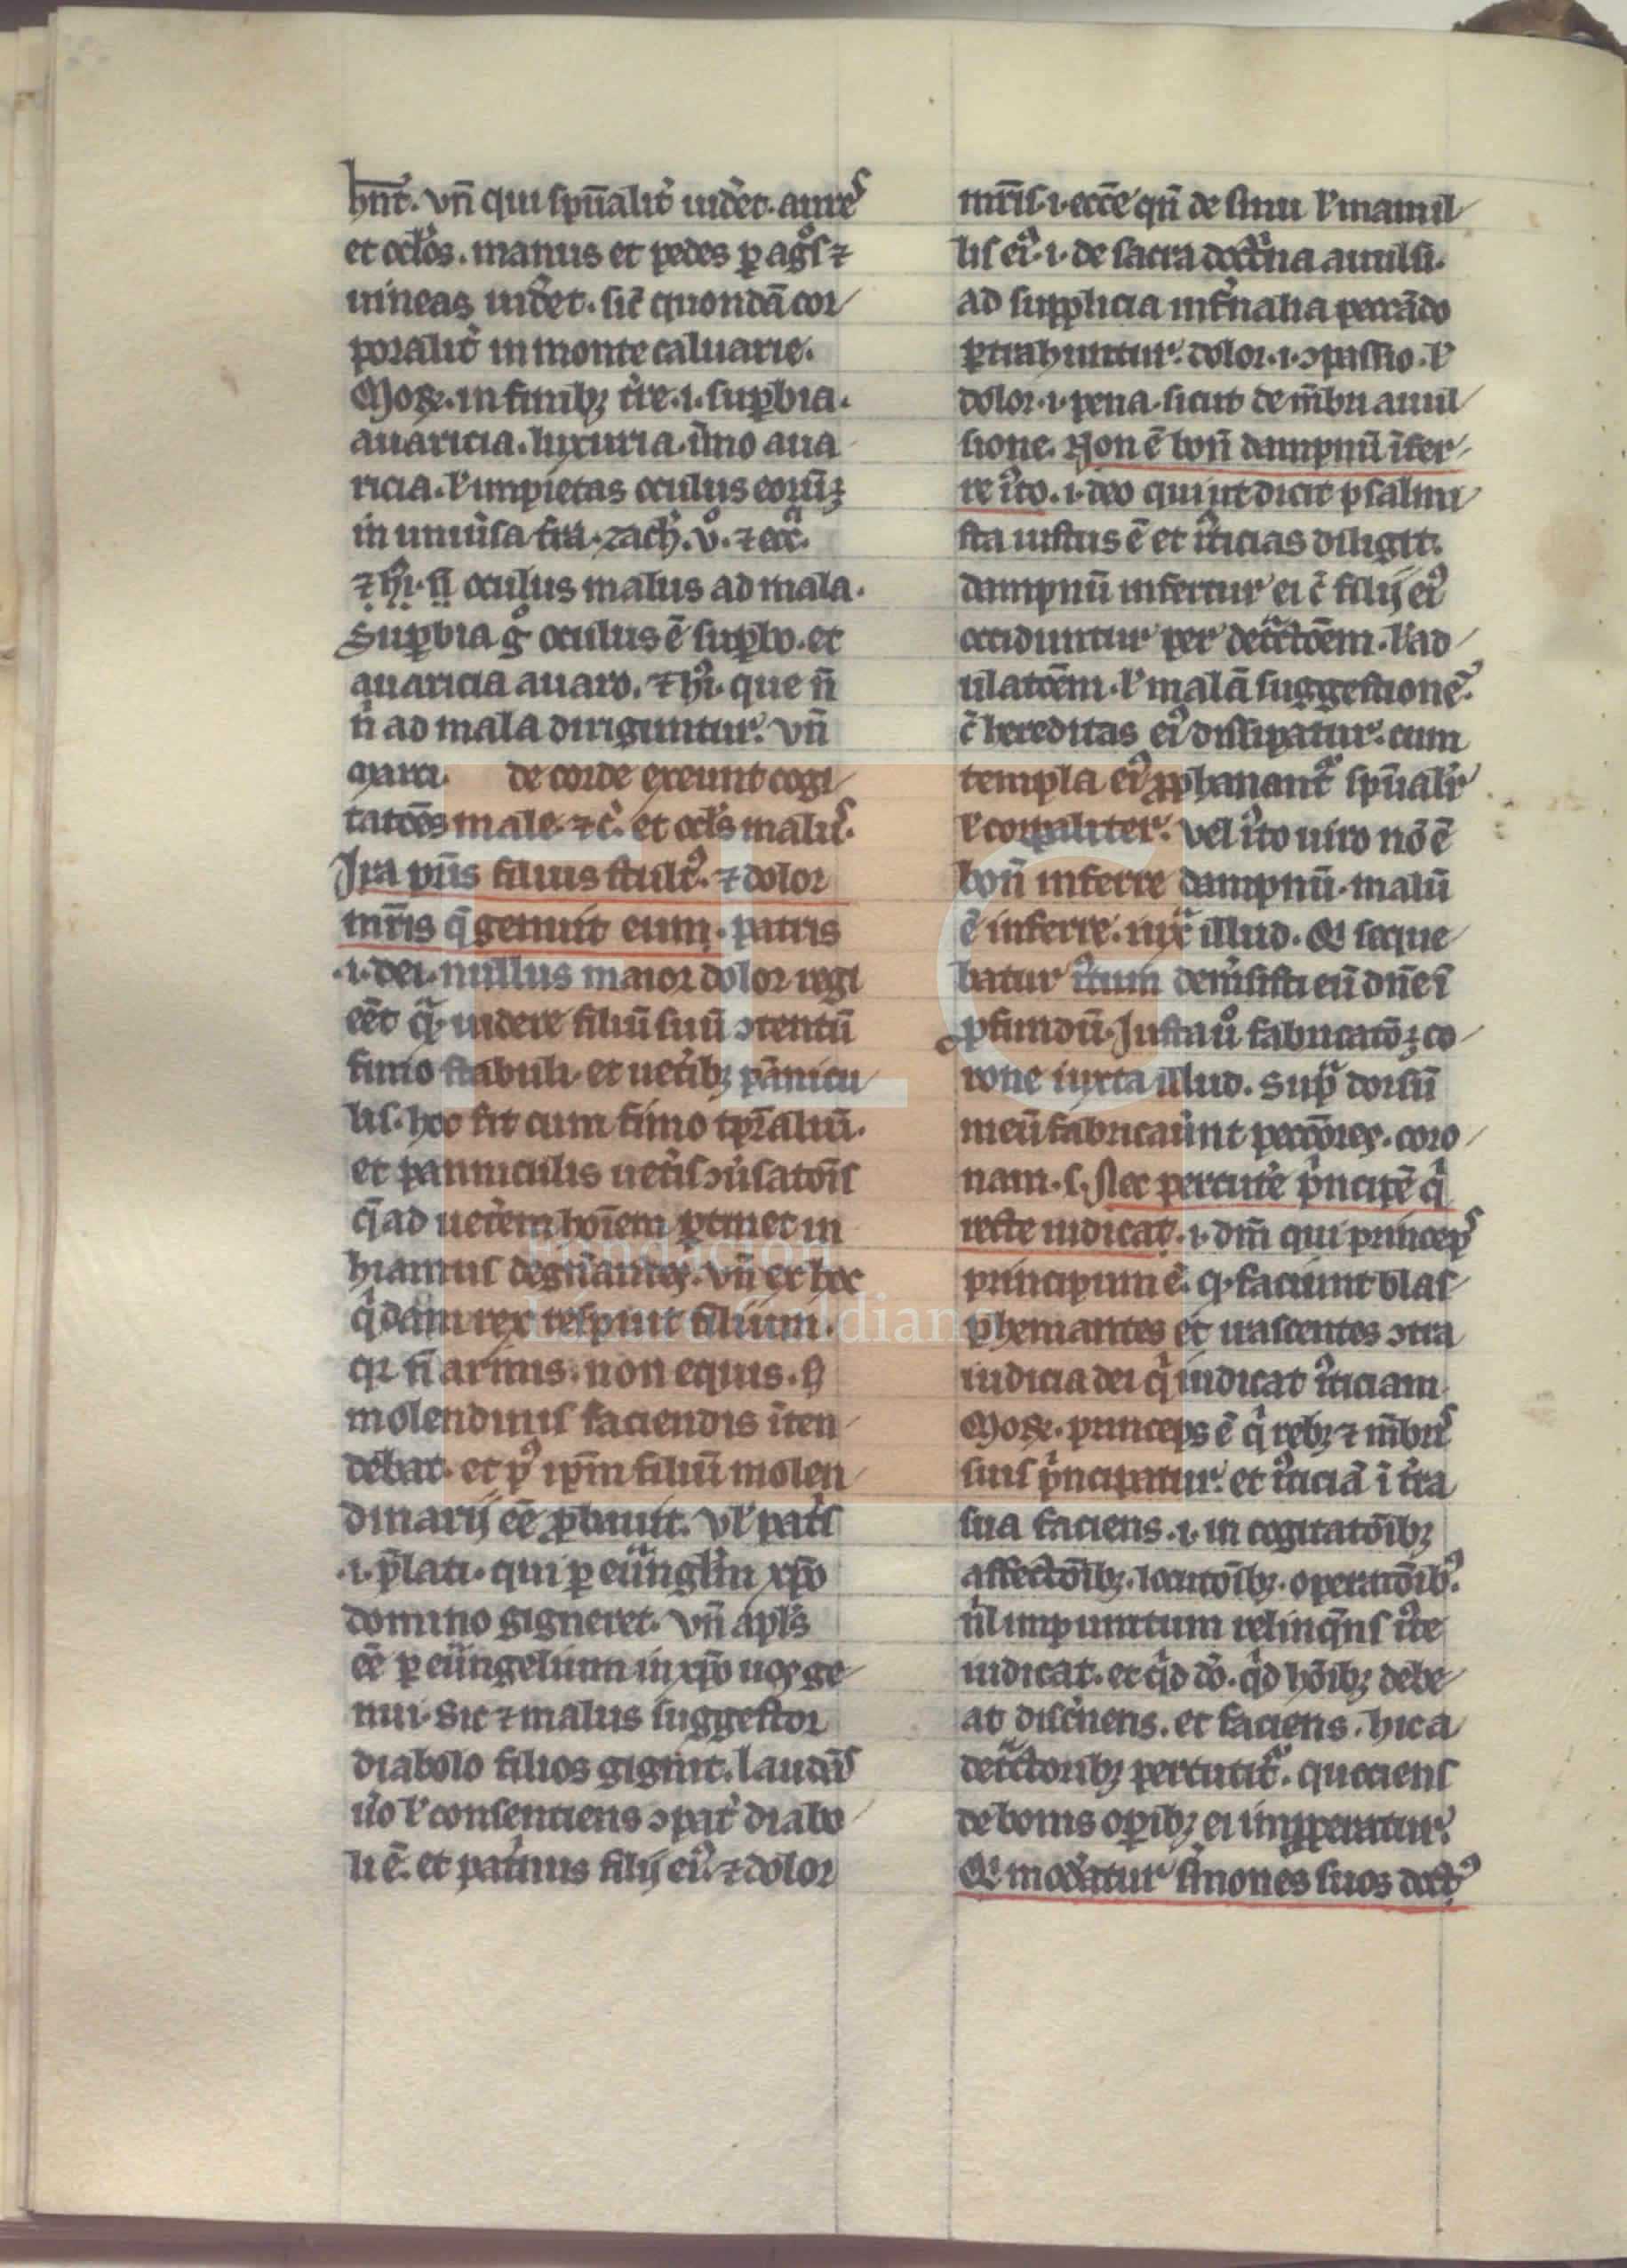 hn̄t. vn̄ qui sp̄ualit᷑ uid᷑et. aures
et oclos. manus et pedes ꝑ agͦs ⁊
uineas uid᷑et. sic᷑ quondā cor
poralit᷑ in monte caluarie.
Mor. in finibꝫ t᷑re .i. suꝑbia.
auaricia. luxuria. īmo aua
ricia. ł impietas oculus eorū ꝫ
in uniu᷑sa t᷑ra. zach. v̊. ⁊ ecͣc.
oculus malus ad mala.
Suꝑbia gͦ oculus ē suꝑbo. et
auaricia auaro. que n̄
n᷑ ad mala diriguntur. vn̄
marci. de corde exeunt cogi
tatōes male. ⁊c̄. et ocls malus.
Ira pr̄is filius stultꝰ. ⁊ dolor
mr̄is q̄ genuit eum. patris
.i. dei. nullus maior dolor regi
eēt qͣ uidere filiū suū ꝯtentū
fimo stabuli. et uet᷑ibꝫ pānicu
lis. hoc fit cum fimo tp̄raliū.
et panniculis uet᷑is ꝯu᷑satōis
q̄ ad uet᷑em hoīem ꝑtinet in
hiamus degn̄antes. vn̄ et hec
qͥdam rex respuit filium.
qꝛ n̄ armis. non equis. sꝫ
molendinis faciendis īten
debat. et pꝰ ip̄m filiū molen
dinarij eē ꝓbauit. Vł pat᷑s
.i. p̄lati. qui ꝑ euͣngłm xp̄o
domino gigneret. vn̄ apl̄s
eē ꝑ euͣngelium in xp̄o uos ge
nui. Sic ⁊ malus suggestor
diabolo filios gignit. laudās
u᷑o ł consentiens ꝯpat᷑ diabo
li ē. et pat᷑nus filij eiꝰ. ⁊ dolor
mr̄is .i. eccē qn̄ de sinu ł mamil
lis eiꝰ .i. de sacra doctͥna auulsi.
ad supplicia inf᷑nalia peccādo
ꝑtrahuntur. dolor .i. ꝯpassio. ł
dolor .i. pena. sicut de m̄bri auul
sione. Non ē bon̄ dampnū īfer
re iͥto .i. deo qui ut dicit psalmi
sta iustus ē et iͥticias diligit.
dampnū infertur ei c̄ filij eiꝰ
occiduntur per detͣctōem. ł ad
ulatōem. ł malā suggestionē.
c̄ hereditas eiꝰ dissipatur. cum
templa eiꝰ ꝓphanant᷑ sp̄ualit᷑
ł corꝑaliter. Vel iͥto uiro nō ē
bon̄ inferre dampnū. malū
ē inferre. iuxͣ illud. Et seque
batur iͥtum dem᷑sisti eū dn̄e ī
ꝓfundū. Iusta u̇ͦ fabricatōꝫ co
rone iuxta illud. supͣ dorsū
meū fabricau᷑nt peccōres. coro
nam. s. Nec percute᷑ pͥncipē qͥ
recte iudicat .i. dm̄ qui princeps
principum ē. qͦ faciunt blas
phemantes et irascentes ꝯtra
iudicia dei qͥ iudicat iͥticiam.
Mor. princeps ē qͥ rebꝫ ⁊ m̄bris
suis pͥncipatur. et iͥticiā ī t᷑ra
sua faciens .i. in cogitatōibꝫ
affectōibꝫ. locutōibꝫ. operatōibꝫ.
nl̄ impunitum relinqͣns iͥte
iudicat. et qͥd dō. qͥd hōibꝫ debe
at disc᷑nens. et faciens. hic a
detͣctoribꝫ percutit᷑. quociens
de bonis oꝑibꝫ ei imꝓperatur.
Qui mod᷑atur s᷑mones suos doctꝰ
Fundación
Lázaro Galdiano